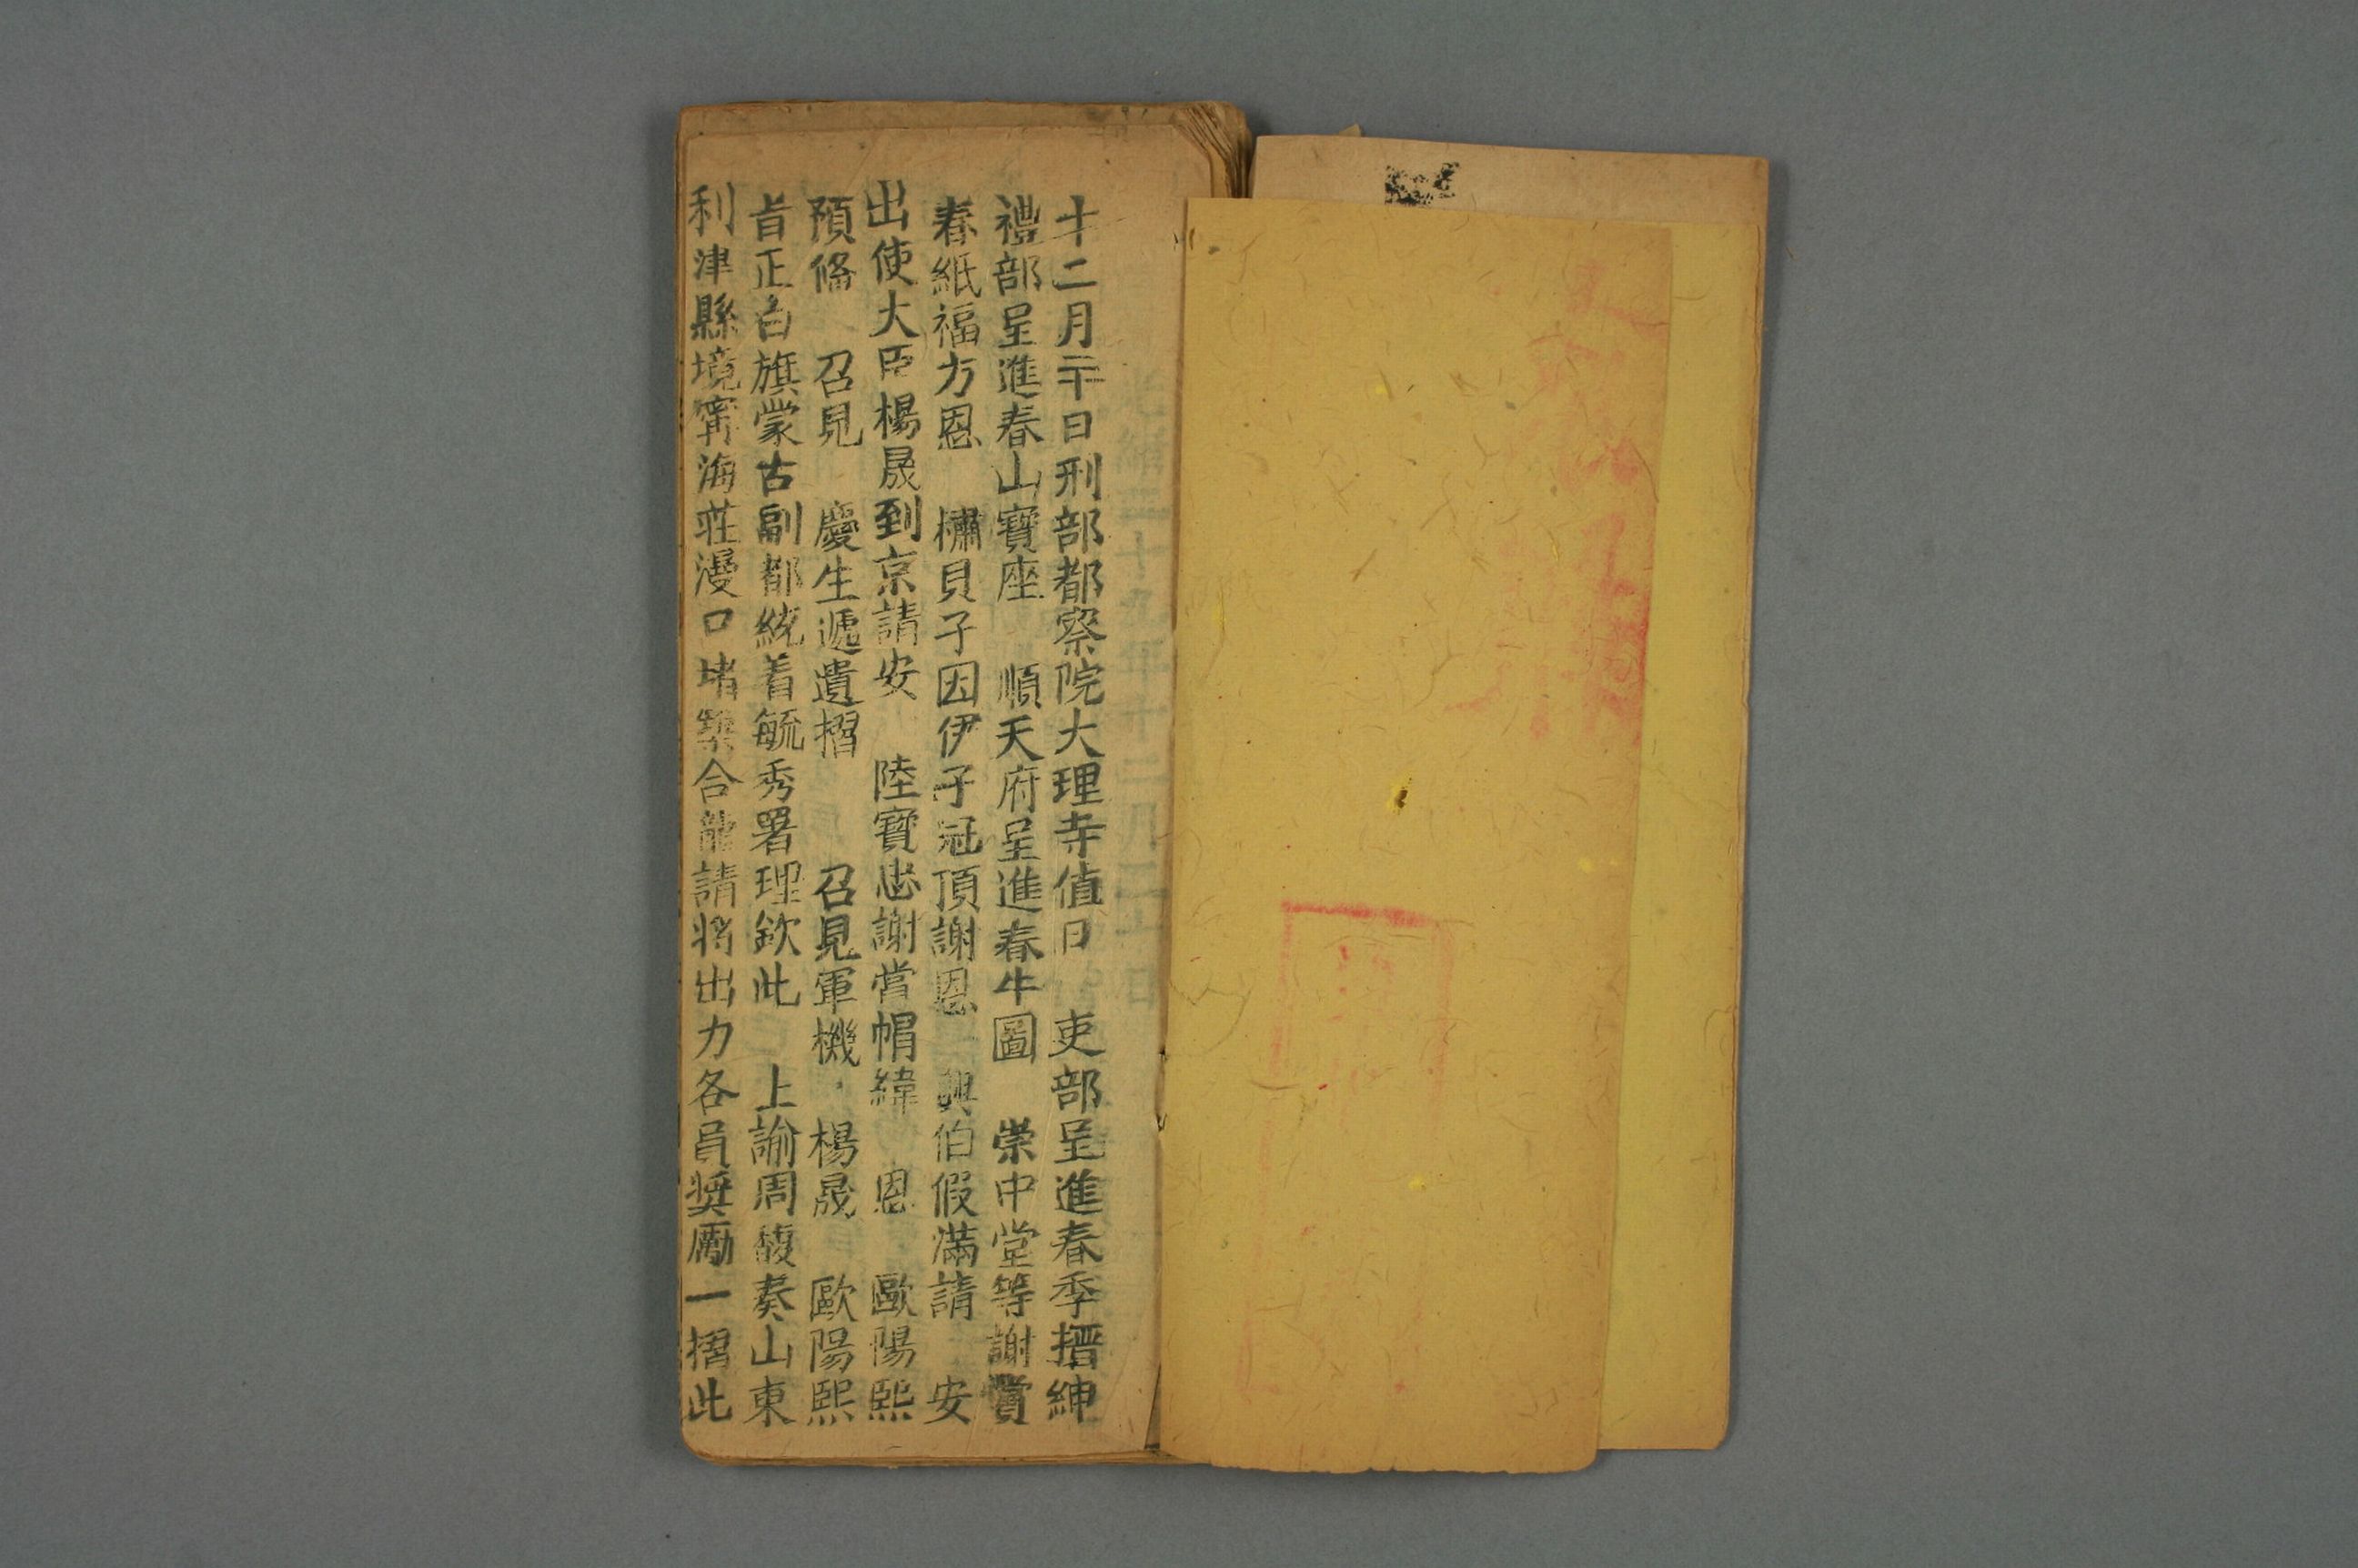 十二月二十日刑部都察院大理寺值日　吏部呈進春季搢紳
禮部呈進春山寶座　順天府呈進春牛圖　崇中堂等謝賞
春紙福方恩　橚貝子因伊子冠頂謝恩　興伯假滿請　安
出使大臣楊晟到京請安　陸寶忠謝賞帽緯　恩　歐陽熙
預備　召見　慶生遞遺摺　召見軍機　楊晟　歐陽熙
旨正白旗蒙古副都統着毓秀署理欽此　上諭周馥奏山東
利津縣境寧海莊漫口堵築合龍請將出力各員獎勵一摺此